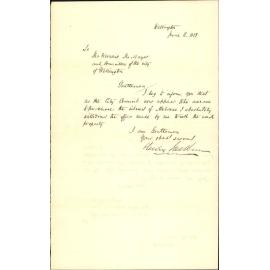 Wellington
June 8, 18
To
His Worship The Mayor
and Councillors of the City
of Wellington
Gentlemen
I beg to inform you that
as the City Council now appear
to purchase the Island of I absolutely
withdraw the offer made by me to sell the said
property
I am Gentlemen
Your obedt servant